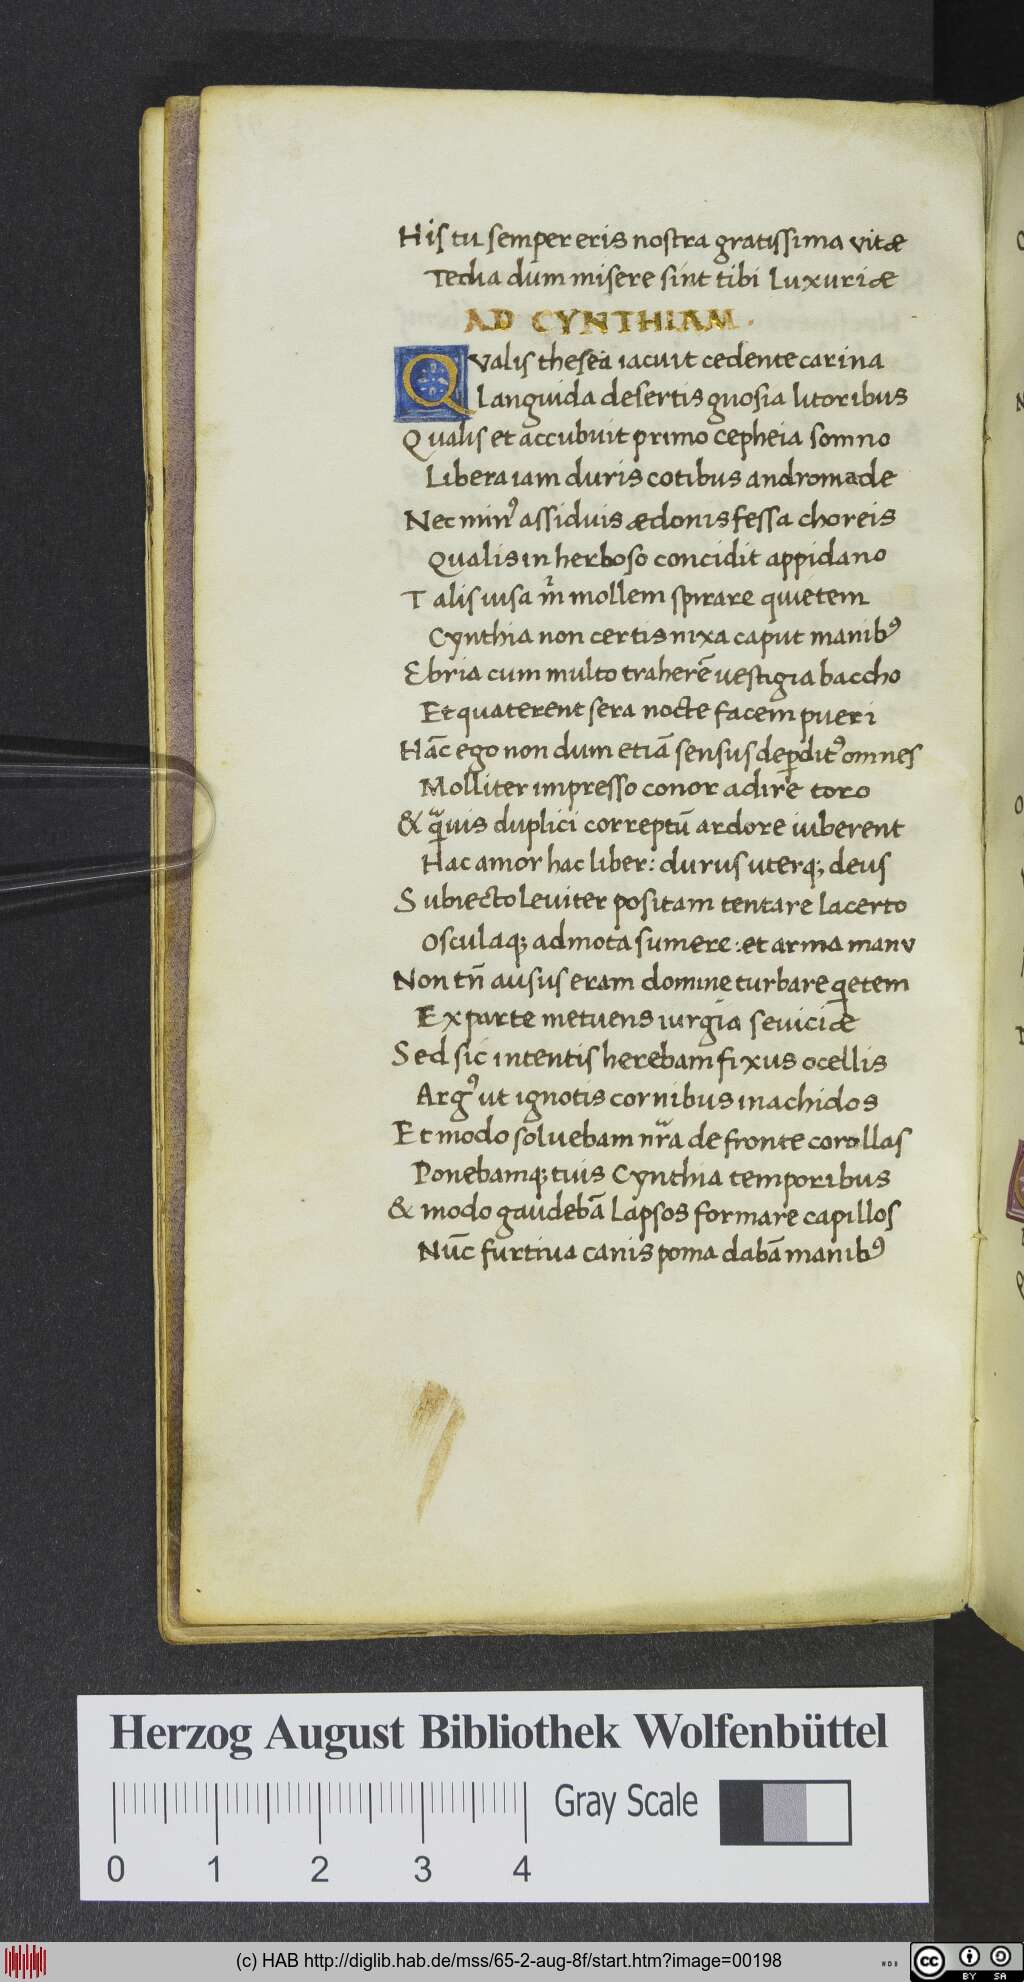 His tu semper eris nostra gratissima vitæ
Tecũa dum misere sint tibi Luxuriæ
AD CYNTHIAM.
Qvalis thesea iacuit cedente carina
Languida desertis gnosia litoribus
Qualis et accubuit primo cepheia somno
Libera iam duris cotibus andromade
Nec minꝰ assiduis ædonis fessa choreis
Qualis in herboso concidit appidano
Talis uisa m̃ mollem spirare quietem
Cynthia non certis nixa caput manibꝰ
Ebria cum multo traherẽ uestigia baccho
Et quaterent sera nocte facem pueri
Hãc ego non dum etiã sensus deꝑditꝰ omnes
Molliter impresso conor adire toro
& q̃uis duplici correptũ ardore iuberent
Hac amor hac liber: durus uterq; deus
Subiecto leuiter positam tentare lacerto
Osculaq; admota sumere: et arma manv
Non tñ ausus eram domine turbare qetem
Exparte metuens iurgia seviciæ
Sed sic intentis herebam fixus ocellis
Argꝰ ut ignotis cornibus inachidos
Et modo soluebam nr̃a de fronte corollas
Ponebamq; tuis Cynthia temporibus
& modo gaudebã Lapsos formare capillos
Nũc furtiua canis poma dabã manibꝰ
Herzog August Bibliothek Wolfenbüttel
Gray Scale
0 1 2 3 4
(c) HAB http://diglib.hab.de/mss/65-2-aug-8f/start.htm?image=00198
cc BY SA